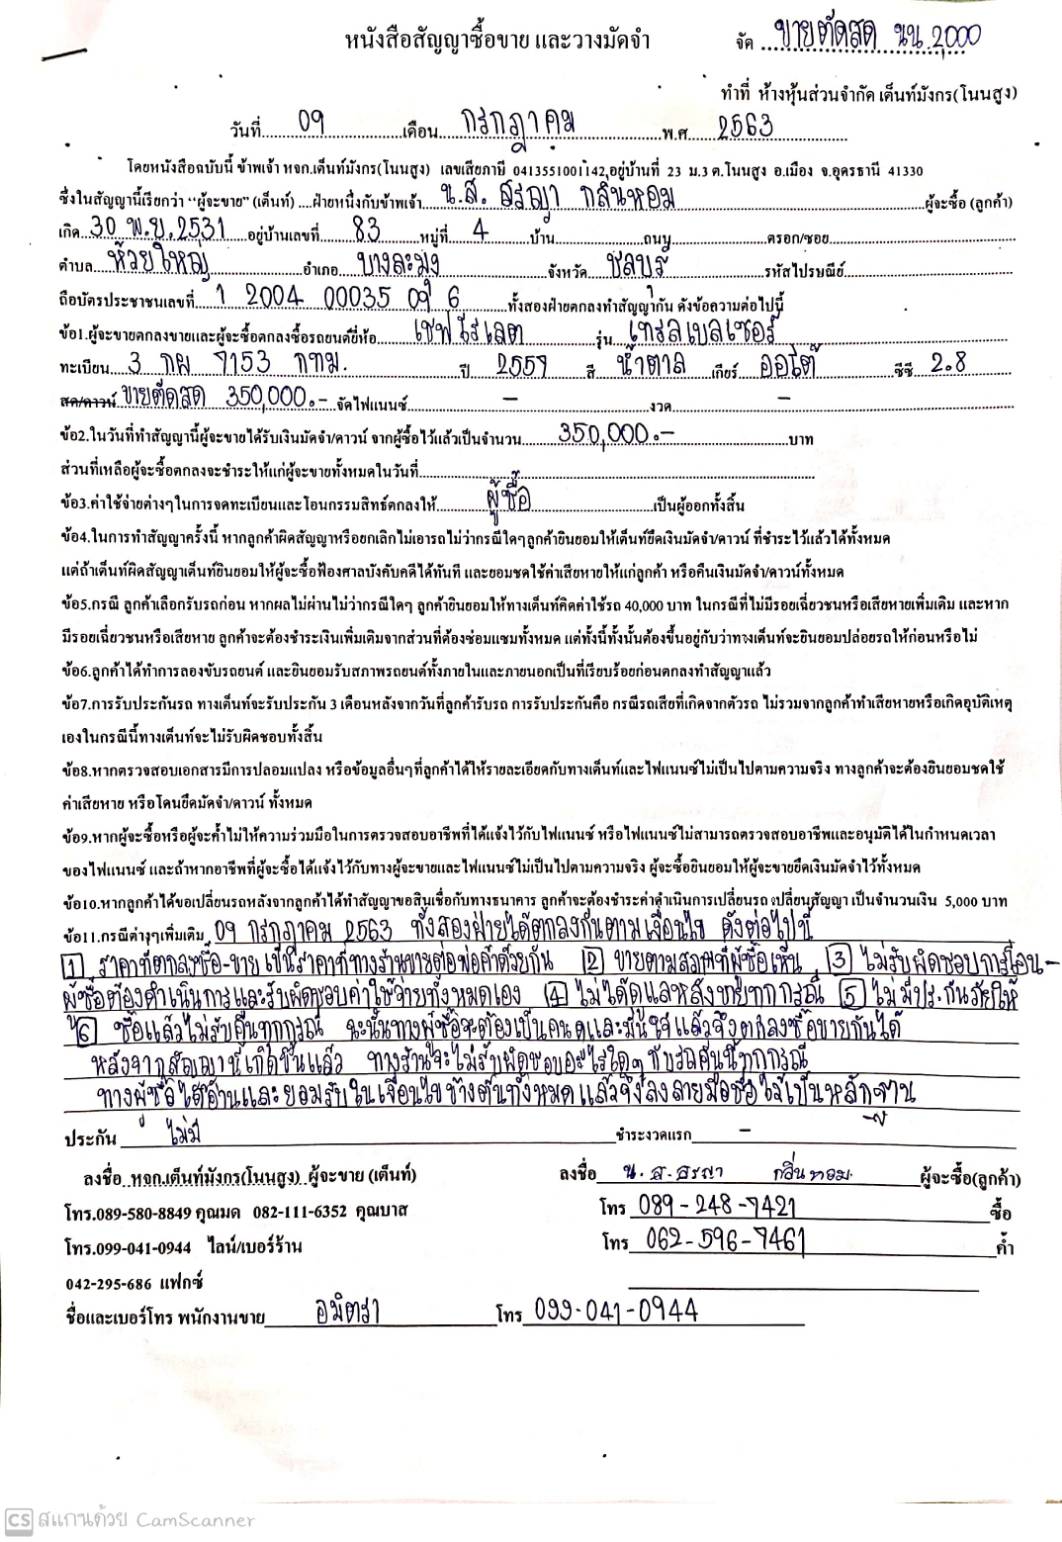 หนังสือสัญญาซื้อขาย และวางมัดจำ จัด ขายตัดสด นน 2,000
ทำที่ ห้างหุ้นส่วนจำกัด เต็นท์มังกร(โนนสูง)
วันที่ 09 เดือน กรกฎาคม พ.ศ 2563
โดยหนังสือฉบับนี้ ข้าพเจ้า หจก.เต็นท์มังกร(โนนสูง) เลขเสียภาษี 0413551001142,อยู่บ้านที่ 23 ม.3 ต.โนนสูง อ.เมือง จ.อุดรธานี 41330
ซึ่งในสัญญานี้เรียกว่า "ผู้จะขาย" (เต็นท์) ....ฝ่ายหนึ่งกับข้าพเจ้า น.ส. สรญา กลิ่นหอม ผู้จะซื้อ (ลูกค้า)
เกิด 30 พ.ย.2531 อยู่บ้านเลขที่ 83 หมู่ที่ 4 บ้าน ถนน ตรอก/ซอย
ตำบล ห้วยใหญ่ อำเภอ บางละมุง จังหวัด ชลบุรี รหัสไปรษณีย์
ถือบัตรประชาชนเลขที่ 1 2004 00035 09 6 ทั้งสองฝ่ายตกลงทำสัญญากัน ดังข้อความต่อไปนี้
ข้อ1.ผู้จะขายตกลงขายและผู้จะซื้อตกลงซื้อรถยนต์ยี่ห้อ เชฟโรเลต รุ่น เทรลเบลเซอร์
ทะเบียน 3 กผ 7153 กทม. ปี 2557 สี น้ำตาล เกียร์ ออโต้ ซีซี 2.8
สด/ดาวน์ ขายตัดสด 350,000.- จัดไฟแนนซ์ - งวด -
ข้อ2.ในวันที่ทำสัญญานี้ผู้จะขายได้รับเงินมัดจำ/ดาวน์ จากผู้ซื้อไว้แล้วเป็นจำนวน 350,000.- บาท
ส่วนที่เหลือผู้จะซื้อตกลงจะชำระให้แก่ผู้จะขายทั้งหมดในวันที่
ข้อ3.ค่าใช้จ่ายต่างๆในการจดทะเบียนและโอนกรรมสิทธ์ตกลงให้ ผู้ซื้อ เป็นผู้ออกทั้งสิ้น
ข้อ4.ในการทำสัญญาครั้งนี้ หากลูกค้าผิดสัญญาหรือยกเลิกไม่เอารถไม่ว่ากรณีใดๆลูกค้ายินยอมให้เต็นท์ยึดเงินมัดจำ/ดาวน์ ที่ชำระไว้แล้วได้ทั้งหมด
แต่ถ้าเต็นท์ผิดสัญญาเต็นท์ยินยอมให้ผู้จะซื้อฟ้องศาลบังคับคดีได้ทันที และยอมชดใช้ค่าเสียหายให้แก่ลูกค้า หรือคืนเงินมัดจำ/ดาวน์ทั้งหมด
ข้อ5.กรณี ลูกค้าเลือกรับรถก่อน หากผลไม่ผ่านไม่ว่ากรณีใดๆ ลูกค้ายินยอมให้ทางเต็นท์คิดค่าใช้รถ 40,000 บาท ในกรณีที่ไม่มีรอยเฉี่ยวชนหรือเสียหายเพิ่มเติม และหาก
มีรอยเฉี่ยวชนหรือเสียหาย ลูกค้าจะต้องชำระเงินเพิ่มเติมจากส่วนที่ต้องซ่อมแซมทั้งหมด แต่ทั้งนี้ทั้งนั้นต้องขึ้นอยู่กับว่าทางเต็นท์จะยินยอมปล่อยรถให้ก่อนหรือไม่
ข้อ6.ลูกค้าได้ทำการลองขับรถยนต์ และยินยอมรับสภาพรถยนต์ทั้งภายในและภายนอกเป็นที่เรียบร้อยก่อนตกลงทำสัญญาแล้ว
ข้อ7.การรับประกันรถ ทางเต็นท์จะรับประกัน 3 เดือนหลังจากวันที่ลูกค้ารับรถ การรับประกันคือ กรณีรถเสียที่เกิดจากตัวรถ ไม่รวมจากลูกค้าทำเสียหายหรือเกิดอุบัติเหตุ
เองในกรณีนี้ทางเต็นท์จะไม่รับผิดชอบทั้งสิ้น
ข้อ8.หากตรวจสอบเอกสารมีการปลอมแปลง หรือข้อมูลอื่นๆที่ลูกค้าได้ให้รายละเอียดกับทางเต็นท์และไฟแนนซ์ไม่เป็นไปตามความจริง ทางลูกค้าจะต้องยินยอมชดใช้
ค่าเสียหาย หรือโดนยึดมัดจำ/ดาวน์ ทั้งหมด
ข้อ9.หากผู้จะซื้อหรือผู้จะค้ำไม่ให้ความร่วมมือในการตรวจสอบอาชีพที่ได้แจ้งไว้กับไฟแนนซ์ หรือไฟแนนซ์ไม่สามารถตรวจสอบอาชีพและอนุมัติได้ในกำหนดเวลา
ของไฟแนนซ์ และถ้าหากอาชีพที่ผู้จะซื้อได้แจ้งไว้กับทางผู้จะขายและไฟแนนซ์ไม่เป็นไปตามความจริง ผู้จะซื้อยินยอมให้ผู้จะขายยึดเงินมัดจำไว้ทั้งหมด
ข้อ10.หากลูกค้าได้ขอเปลี่ยนรถหลังจากลูกค้าได้ทำสัญญาขอสินเชื่อกับทางธนาคาร ลูกค้าจะต้องชำระค่าดำเนินการเปลี่ยนรถ เปลี่ยนสัญญา เป็นจำนวนเงิน 5,000 บาท
ข้อ11.กรณีต่างๆเพิ่มเติม 09 กรกฎาคม 2563 ทั้งสองฝ่ายได้ตกลงกันตามเงื่อนไข ดังต่อไปนี้
1 ราคาที่ตกลงซื้อ-ขาย เป็นราคาที่ทางร้านขายต่อพ่อค้าด้วยกัน 2 ขายตามสภาพที่ผู้ซื้อเห็น 3 ไม่รับผิดชอบการโอน-
ผู้ซื้อต้องดำเนินการและรับผิดชอบค่าใช้จ่ายทั้งหมดเอง 4 ไม่ได้ดูแลหลังขายทุกกรณี 5 ไม่มีประกันภัยให้
6 ซื้อแล้วไม่รับคืนทุกกรณี ฉะนั้นทางผู้ซื้อจะต้องเป็นคนดูและมั่นใจแล้วจึงตกลงซื้อขายกันได้
หลังจากสัญญานี้เกิดขึ้นแล้ว ทางร้านจะไม่รับผิดชอบอะไรใดๆ กับรถคันนี้ทุกกรณี
ทางผู้ซื้อได้อ่านและยอมรับในเงื่อนไขข้างต้นทั้งหมดแล้วจึงลงลายมือชื่อไว้เป็นหลักฐาน
ประกัน ไม่มี ชำระงวดแรก -
ลงชื่อ หจก.เต็นท์มังกร(โนนสูง) ผู้จะขาย (เต็นท์) ลงชื่อ น.ส.สรญา กลิ่นหอม ผู้จะซื้อ(ลูกค้า)
โทร.089-580-8849 คุณมด 082-111-6352 คุณบาส โทร 089-248-7421 ซื้อ
โทร.099-041-0944 ไลน์/เบอร์ร้าน โทร 062-596-7461 ค้ำ
042-295-686 แฟกซ์
ชื่อและเบอร์โทร พนักงานขาย อมิตรา โทร 099-041-0944
CS สแกนด้วย CamScanner